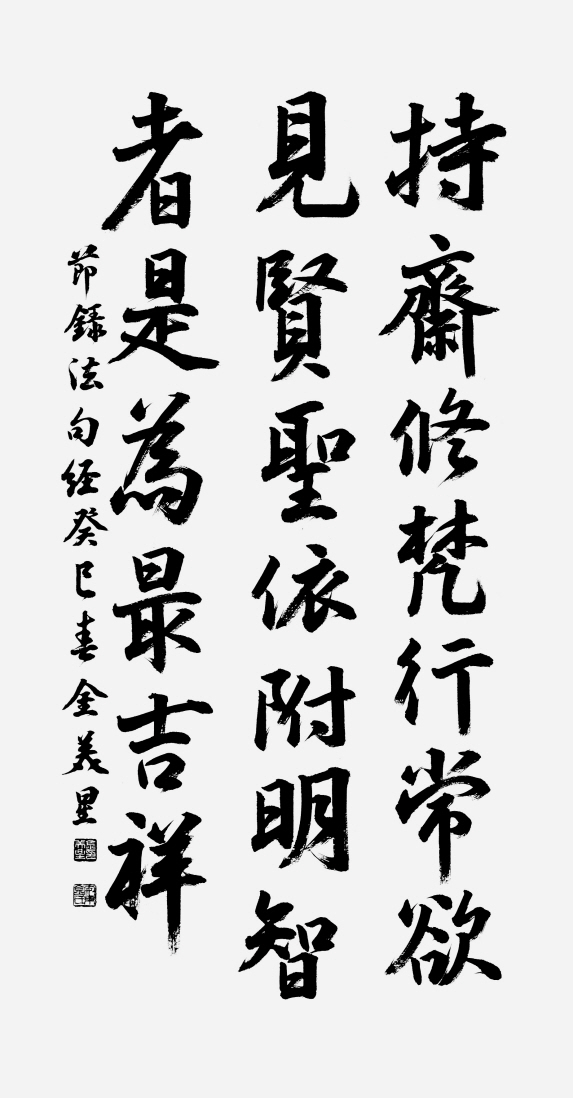 持齋修梵行常欲
見賢聖依附明智
者是為最吉祥
節錄法句経癸巳春金美星